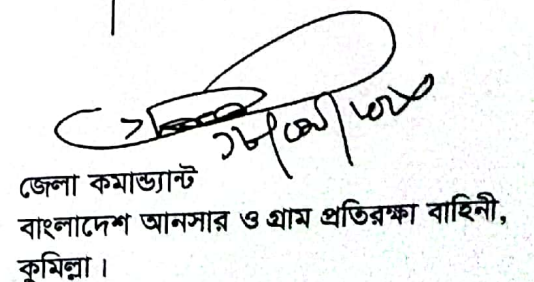 জেলা কমান্ড্যান্ট
বাংলাদেশ আনসার ও গ্রাম প্রতিরক্ষা বাহিনী,
কুমিল্লা।